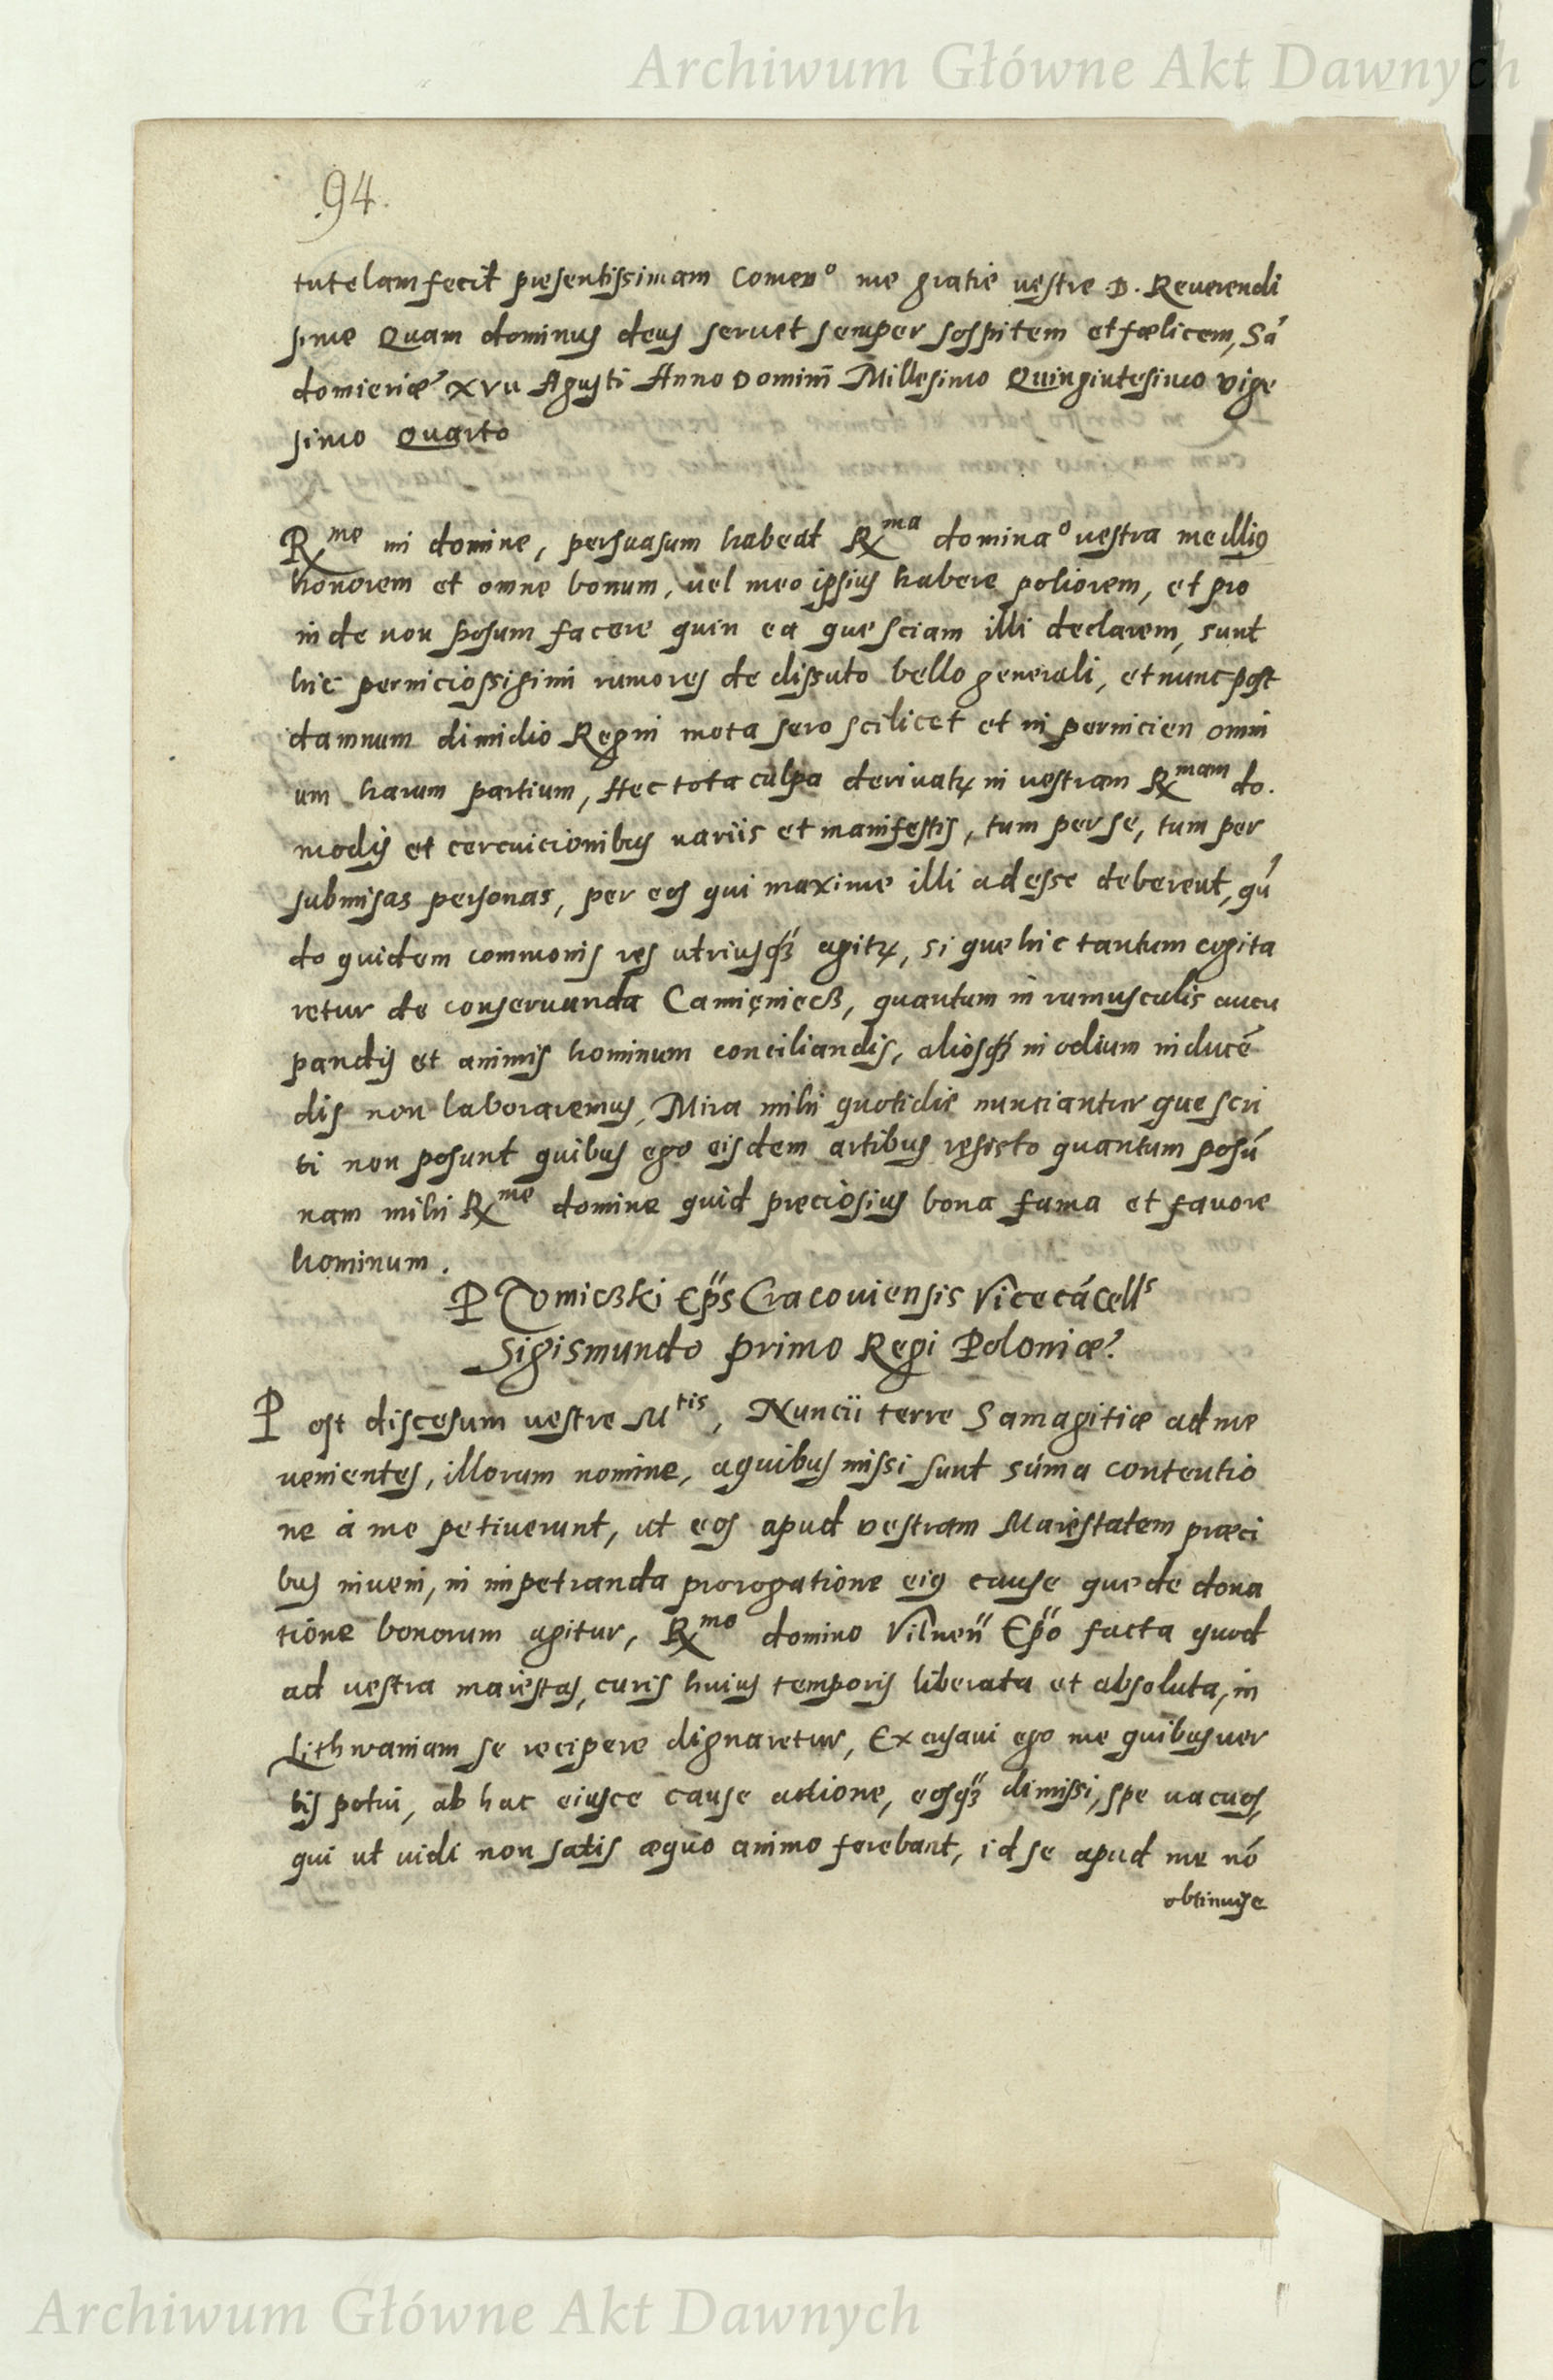 Archiwum Główne Akt Dawnych
.94.
tutelam fecit presentissimam Comen° me gratie vestre .D. Reverendi
sime Quam dominus deus servet semper sospitem et fœlicem, Sā
domieriæ xvii Agusti Anno Domini Millesimo Quingintesimo vige
simo Quarto
Rme mi domine, persuasum habeat Rma domina° vestra me illig
honorem et omne bonum, vel meo ipsius habere potiorem, et pro
inde non posum facere quin ea que sciam illi declarem, sunt
hic perniciossisimi rumores de dissuto bello generali, et nunc post
damnum dimidio Regni mota sero scilicet et in pernicien omni
um harum partium, Hec tota culpa derivatʳ in vestram Rmam do.
modis et cercuicionibus variis et manifestis, tum per se, tum per
submisas personas, per eos qui maxime illi adesse deberent, qū
do quidem commonis res utriusqʒ agitʳ, si que hic tantum cogita
retur de conservanda Camięniecz, quantum in rumusculis aucu
pandis et animis hominum conciliandis, aliosqʒ in odium inducē
dis non laboraremus, Mira mihi quotidie nunciantur que scri
bi non posunt quibus ego eisdem artibus resisto quantum posū
nam mihi Rme domine quid preciosius bona fama et favore
hominum.
P Tomiczki Ep̄s Cracoviensis Vicecācells
Sigismundo primo Regi Poloniæ
Post discesum vestre Mtis, Nuncii terre Samagitiæ ad me
venientes, illorum nomine, a quibus missi sunt sūma contentio
ne a me petiverunt, ut eos apud vestram Maiestatem præci
bus iuveni, in impetranda prorogatione eig cause que de dona
tione bonorum agitur, Rmo domino Vilnen̄ Ep̄o facta quod
ad vestra maiestas, curis huius temporis liberata et absoluta, in
Lithwaniam se recipere dignaretur, Excusavi ego me quibus ver
bis potui, ab hac eiusce cause actione, eosqʒ dimissi, spe vacuos,
qui ut vidi non satis æquo animo ferebant, id se apud me nō
obtinuise
Archiwum Główne Akt Dawnych